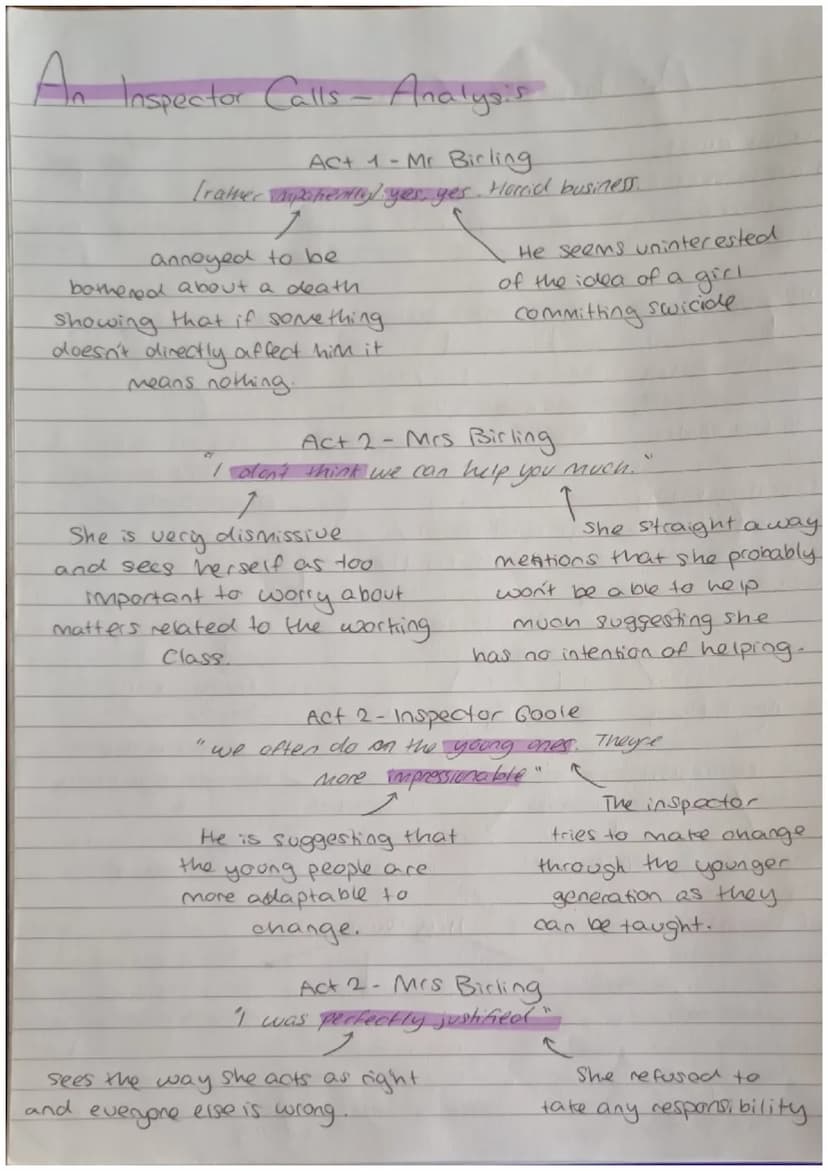 An Inspector Calls - Analysis
Act 1 - Mr Birling
[rather impatiently] yes, yes. Horrid business.
annoyed to be
bothered about a death
showing that if something
doesn't directly affect him it
means nothing.
He seems uninterested
of the idea of a girl
committing suicide
Act 2 - Mrs Birling
"I don't think we can help you much."
She is very dismissive
and sees herself as too
important to worry about
matters related to the working
class.
She straight away
mentions that she probably
won't be able to help
much suggesting she
has no intention of helping.
Act 2 - Inspector Goole
"we often do on the young ones. They're
more impressionable"
He is suggesting that
the young people are
more adaptable to
change.
The inspector
tries to make change
through the younger
generation as they
can be taught.
Act 2 - Mrs Birling
"I was perfectly justified"
sees the way she acts as right
and everyone else is wrong.
She refused to
take any responsibility